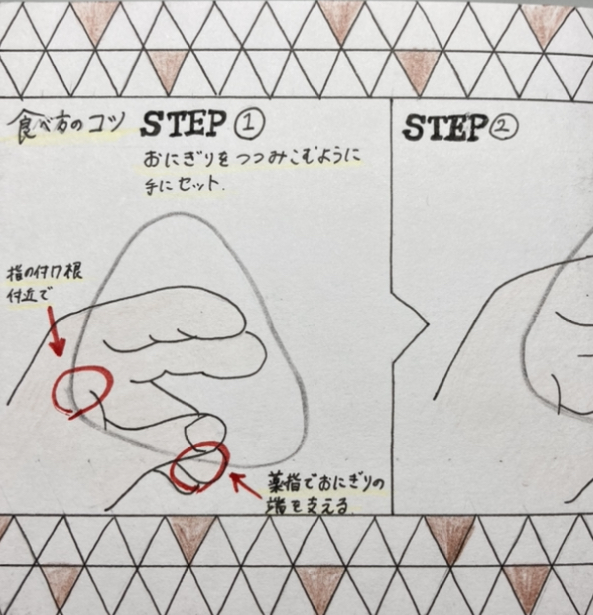 食べ方のコツ
STEP ①
おにぎりをつつみこむように
手にセット.
指の付け根
付近で
薬指でおにぎりの
端を支える
STEP②